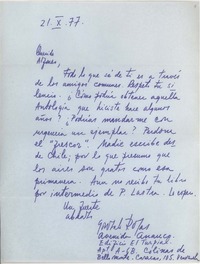 21. X. 77.
Querido
Alfonso,
Todo lo que sé de ti es a través
de los amigos comunes. Respeto tu si-
lencio. ¿Cómo podría obtener aquella
Antología que hiciste hace algunos
años? ¿Podrías mandarme con
urgencia un ejemplar? Perdona
el "descaro". Nadie escribe des-
de Chile, pero presumo que los
aires son gratos como son
primavera. Aun no recibo tu libro
por intermedio de P. Lastra. Lo espero.
Un fuerte
abrazo
Gonzalo Rojas
Avenida Arauco,
Edificio El Turpial
Apto A-6B. Colinas de
Bello Monte. Caracas, 105. Venezuela.